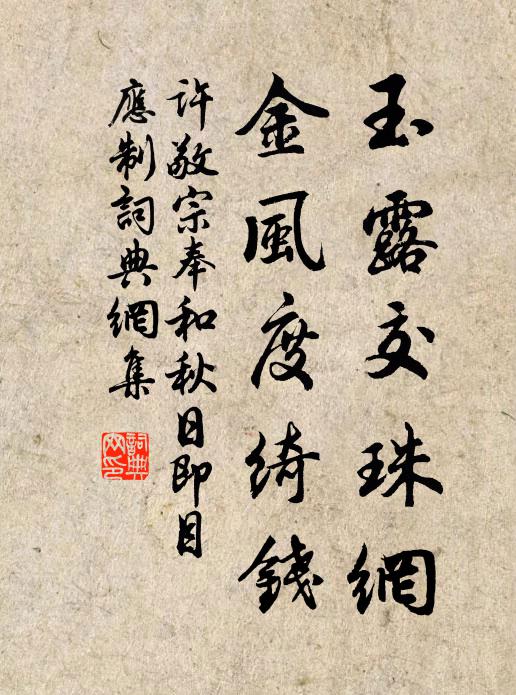 玉露交珠網
金風度綺錢
許敬宗奉和秋日即目
應制詞典網集
詞典網印